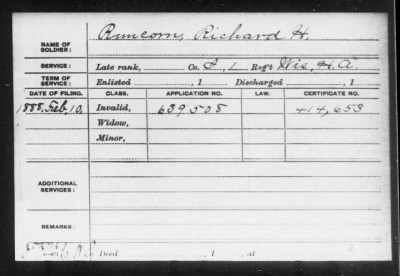 NAME OF SOLDIER: Runcorn, Richard H.
SERVICE: Late rank, Co. L, 1 Reg't Wis. H. A.
TERM OF SERVICE: Enlisted , 1 Discharged , 1
DATE OF FILING. CLASS. APPLICATION NO. LAW. CERTIFICATE NO.
1888, Feb, 10, Invalid, 639508 414,653
Widow,
Minor,
ADDITIONAL SERVICES:
REMARKS:
Died , 1 , at